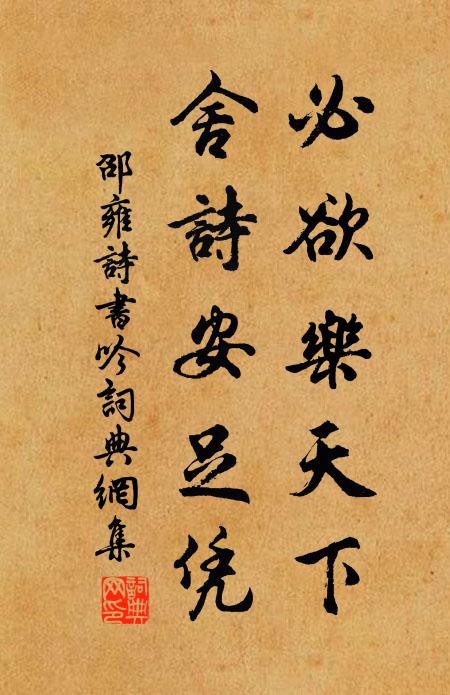 必欲樂天下
舍詩安足凭
邵雍詩書吟詞典網集
詞典网印